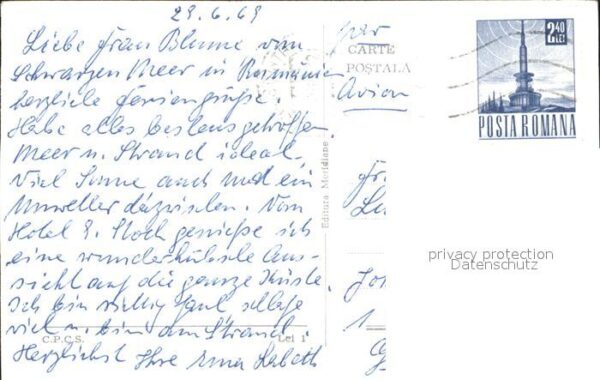 29.6.69
Liebe Frau Blume vom
Schwarzen Meer in Rumänien
herzliche Feriengrüße.
Habe alles bestens getroffen
Meer u. Strand ideal.
Viel Sonne auch mal ein
Unwetter dazwischen. Vom
Hotel 8. Stock genieße ich
eine wunderhübsche Aus-
sicht auf die ganze Küste.
Ich bin richtig faul schlafe
viel u. bin am Strand.
Herzlichst Ihre Erna
per
CARTE
POȘTALA
Avion
Editura Meridiane
C.P.C.S.
Lei 1
2,40
LEI
POSTA ROMANA
privacy protection
Datenschutz